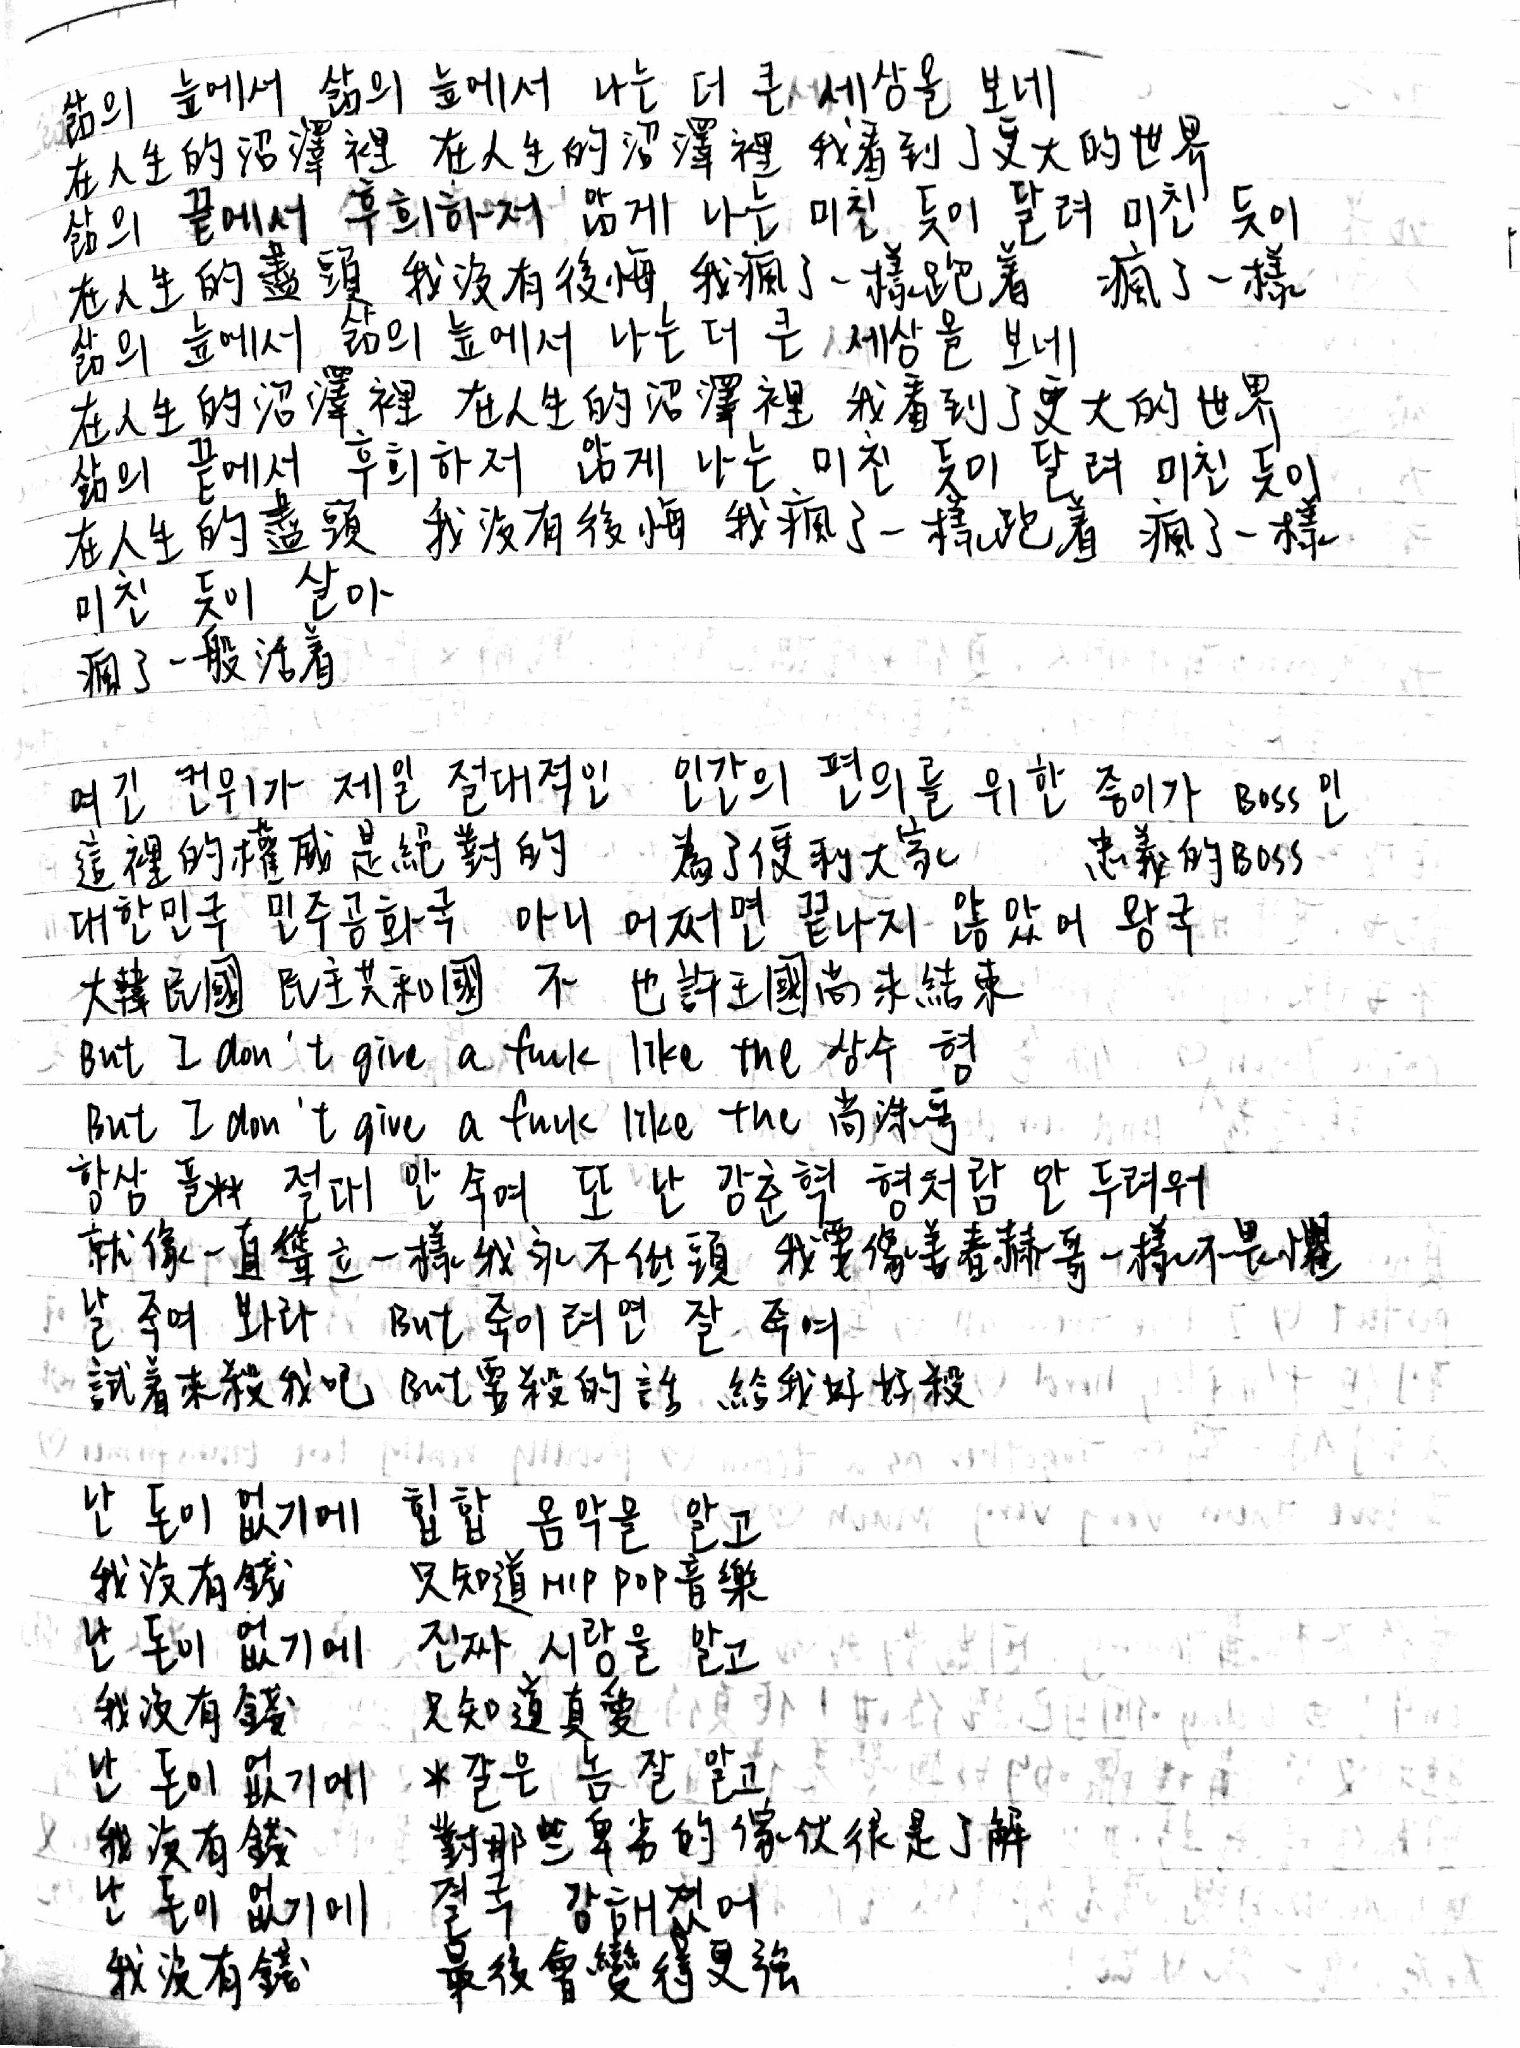 삶의 늪에서 삶의 늪에서 나는 더 큰 세상을 보네
在人生的沼澤裡 在人生的沼澤裡 我看到了更大的世界
삶의 끝에서 후회하저 않게 나는 미친 듯이 달려 미친 듯이
在人生的盡頭 我沒有後悔 我瘋了一樣跑着 瘋了一樣
삶의 늪에서 삶의 늪에서 나는 더 큰 세상을 보네
在人生的沼澤裡 在人生的沼澤裡 我看到了更大的世界
삶의 끝에서 후회하저 않게 나는 미친 듯이 달려 미친 듯이
在人生的盡頭 我沒有後悔 我瘋了一樣跑着 瘋了一樣
미친 듯이 살아
瘋了一般活着
여긴 컨위가 제일 절대적인 인간의 편의를 위한 종이가 BOSS인
這裡的權威是絕對的 為了便利大家 忠義的BOSS
대한민국 민주공화국 아니 어쩌면 끝나지 않았어 왕국
大韓民國 民主共和國 不 也許王國尚未結束
But I don't give a fuck like the 상수 형
But I don't give a fuck like the 尚洙哥
항상 꼴** 절대 안 숙여 또 난 강춘혁 형처럼 안 두려워
就像一直聳立一樣我永不低頭 我要像姜春赫哥一樣不畏懼
날 죽여 봐라 But 죽이려면 잘 죽여
試着來殺我吧 But要殺的話 給我好好殺
난 돈이 없기에 힙합 음악을 알고
我沒有錢 只知道HIP POP音樂
난 돈이 없기에 진짜 사랑을 알고
我沒有錢 只知道真愛
난 돈이 없기에 *같은 놈 잘 알고
我沒有錢 對那些卑劣的傢伙很是了解
난 돈이 없기에 결국 강해졌어
我沒有錢 最後會變得更強